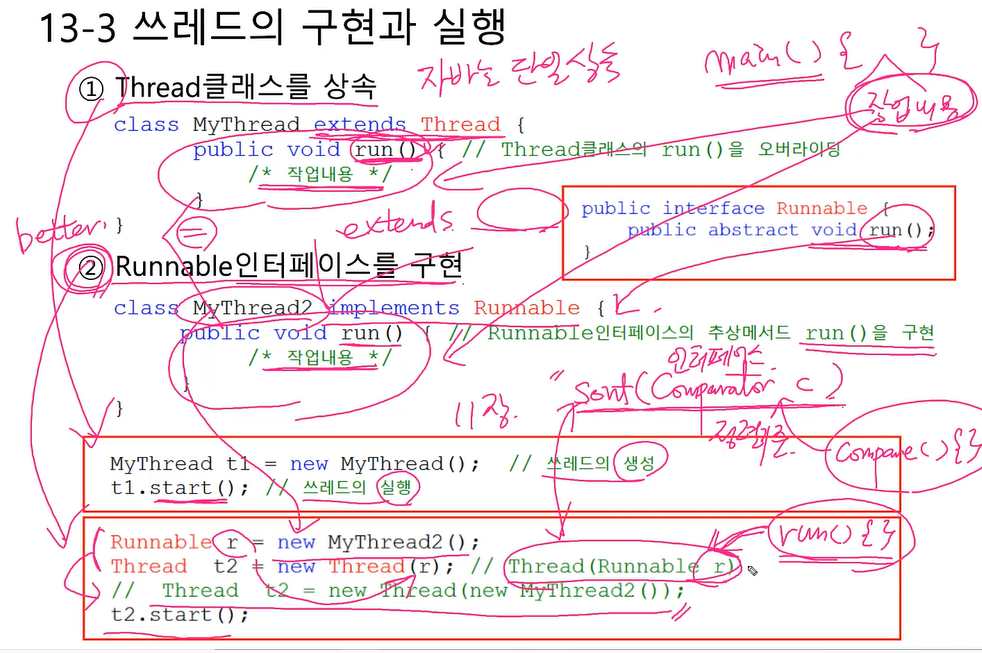 13-3 쓰레드의 구현과 실행
① Thread클래스를 상속
자바는 단일상속
main() { }
작업내용
class MyThread extends Thread {
public void run() { // Thread클래스의 run()을 오버라이딩
/* 작업내용 */
}
}
public interface Runnable {
public abstract void run();
}
better.
=
extends
② Runnable인터페이스를 구현
class MyThread2 implements Runnable {
public void run() { // Runnable인터페이스의 추상메서드 run()을 구현
/* 작업내용 */
}
}
인터페이스
sort(Comparator c)
11장.
정렬기준
Compare(){}
MyThread t1 = new MyThread(); // 쓰레드의 생성
t1.start(); // 쓰레드의 실행
run(){}
Runnable r = new MyThread2();
Thread t2 = new Thread(r); // Thread(Runnable r)
// Thread t2 = new Thread(new MyThread2());
t2.start();